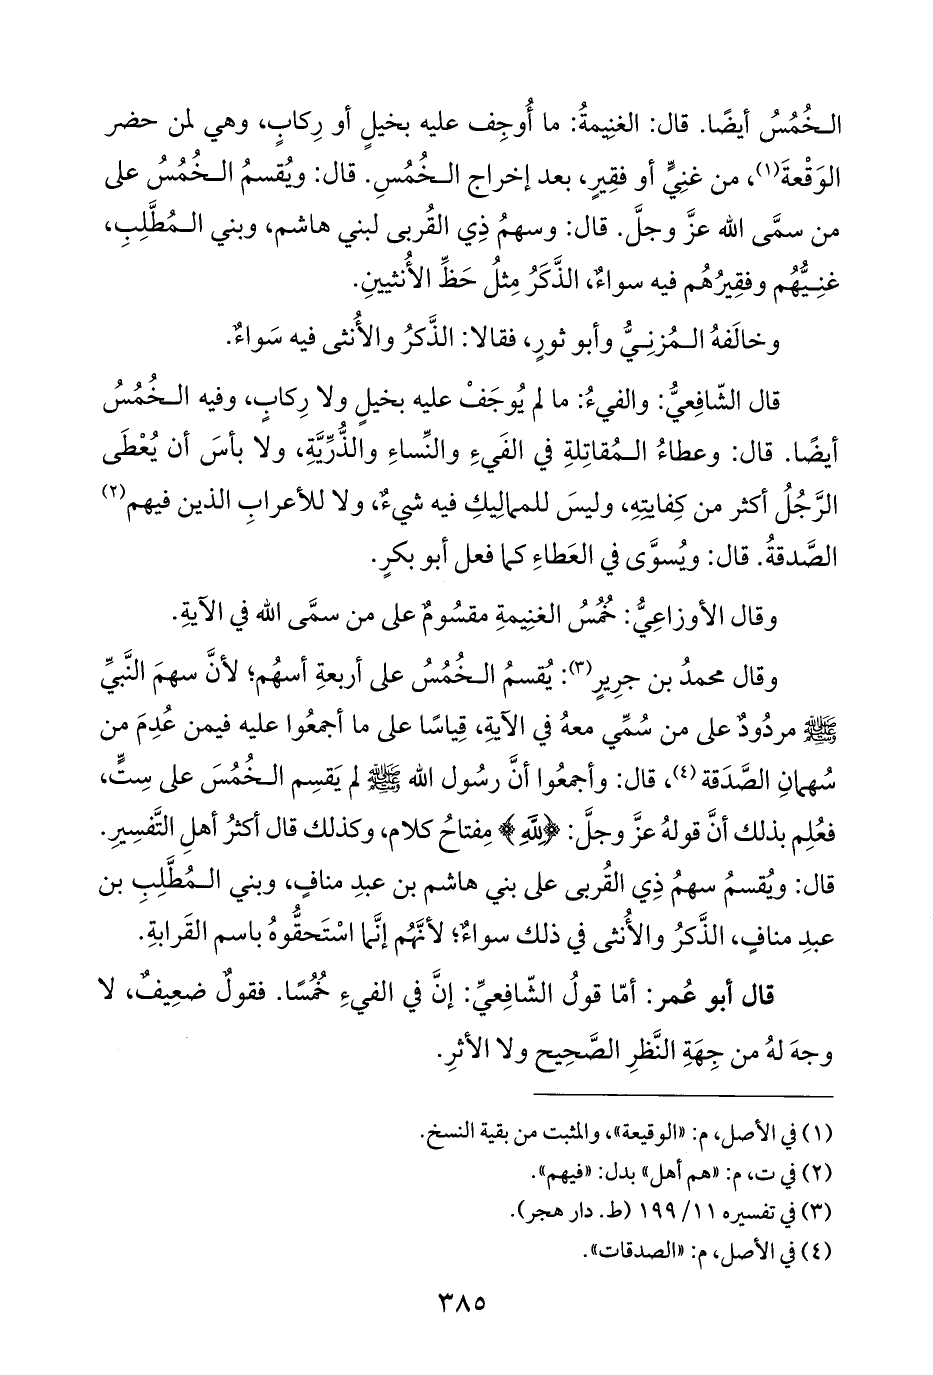 الخُمُسُ أيضًا. قال: الغنِيمةُ: ما أُوجِف عليه بخيلٍ أو رِكابٍ، وهي لمن حضر
الوَقْعةَ(١)، من غنِيٍّ أو فقِيرٍ، بعد إخراج الخُمُسِ. قال: ويُقسمُ الخُمُسُ على
من سمَّى الله عزَّ وجلَّ. قال: وسهمُ ذِي القُربى لبني هاشم، وبني المُطَّلِبِ،
غنِيُّهُم وفقِيرُهُم فيه سواءٌ، الذَّكَرُ مِثلُ حَظِّ الأُنثيينِ.
وخالَفهُ المُزنِيُّ وأبو ثورٍ، فقالا: الذَّكرُ والأُنثى فيه سَواءٌ.
قال الشّافِعيُّ: والفيءُ: ما لم يُوجَفْ عليه بخيلٍ ولا رِكابٍ، وفيه الخُمُسُ
أيضًا. قال: وعطاءُ المُقاتِلةِ في الفَيءِ والنِّساءِ والذُّرِّيَّةِ، ولا بأسَ أن يُعْطَى
الرَّجُلُ أكثر من كِفايتِهِ، وليسَ للمالِيكِ فيه شيءٌ، ولا للأعرابِ الذين فيهم(٢)
الصَّدقةُ. قال: ويُسوَّى في العَطاءِ كما فعل أبو بكرٍ.
وقال الأوزاعِيُّ: خُمُسُ الغنِيمةِ مقسُومٌ على من سمَّى الله في الآيةِ.
وقال محمدُ بن جرِيرٍ(٣): يُقسمُ الخُمُسُ على أربعةِ أسهُم؛ لأنَّ سهمَ النَّبيِّ
ﷺ مردُودٌ على من سُمِّي معهُ في الآيةِ، قِياسًا على ما أجمعُوا عليه فيمن عُدِمَ من
سُهمانِ الصَّدَقة(٤)، قال: وأجمعُوا أنَّ رسُول الله ﷺ لم يَقسِم الخُمُسَ على سِتٍّ،
فعُلِم بذلك أنَّ قولهُ عزَّ وجلَّ: ﴿لِلَّهِ﴾ مِفتاحُ كلام، وكذلك قال أكثرُ أهلِ التَّفسِيرِ.
قال: ويُقسمُ سهمُ ذِي القُربى على بني هاشم بن عبدِ منافٍ، وبني المُطَّلِبِ بن
عبدِ منافٍ، الذَّكرُ والأُنثى في ذلك سواءٌ؛ لأنَّهُم إنَّما اسْتَحقُّوهُ باسم القَرابةِ.
قال أبو عُمر: أمّا قولُ الشّافعيِّ: إنَّ في الفيءِ خُمُسًا. فقولٌ ضعِيفٌ، لا
وجهَ لهُ من جِهَةِ النَّظرِ الصَّحِيح ولا الأثرِ.
(١) في الأصل، م: «الوقيعة»، والمثبت من بقية النسخ.
(٢) في ت، م: «هم أهل» بدل: «فيهم».
(٣) في تفسيره ١١/ ١٩٩ (ط. دار هجر).
(٤) في الأصل، م: «الصدقات».
٣٨٥